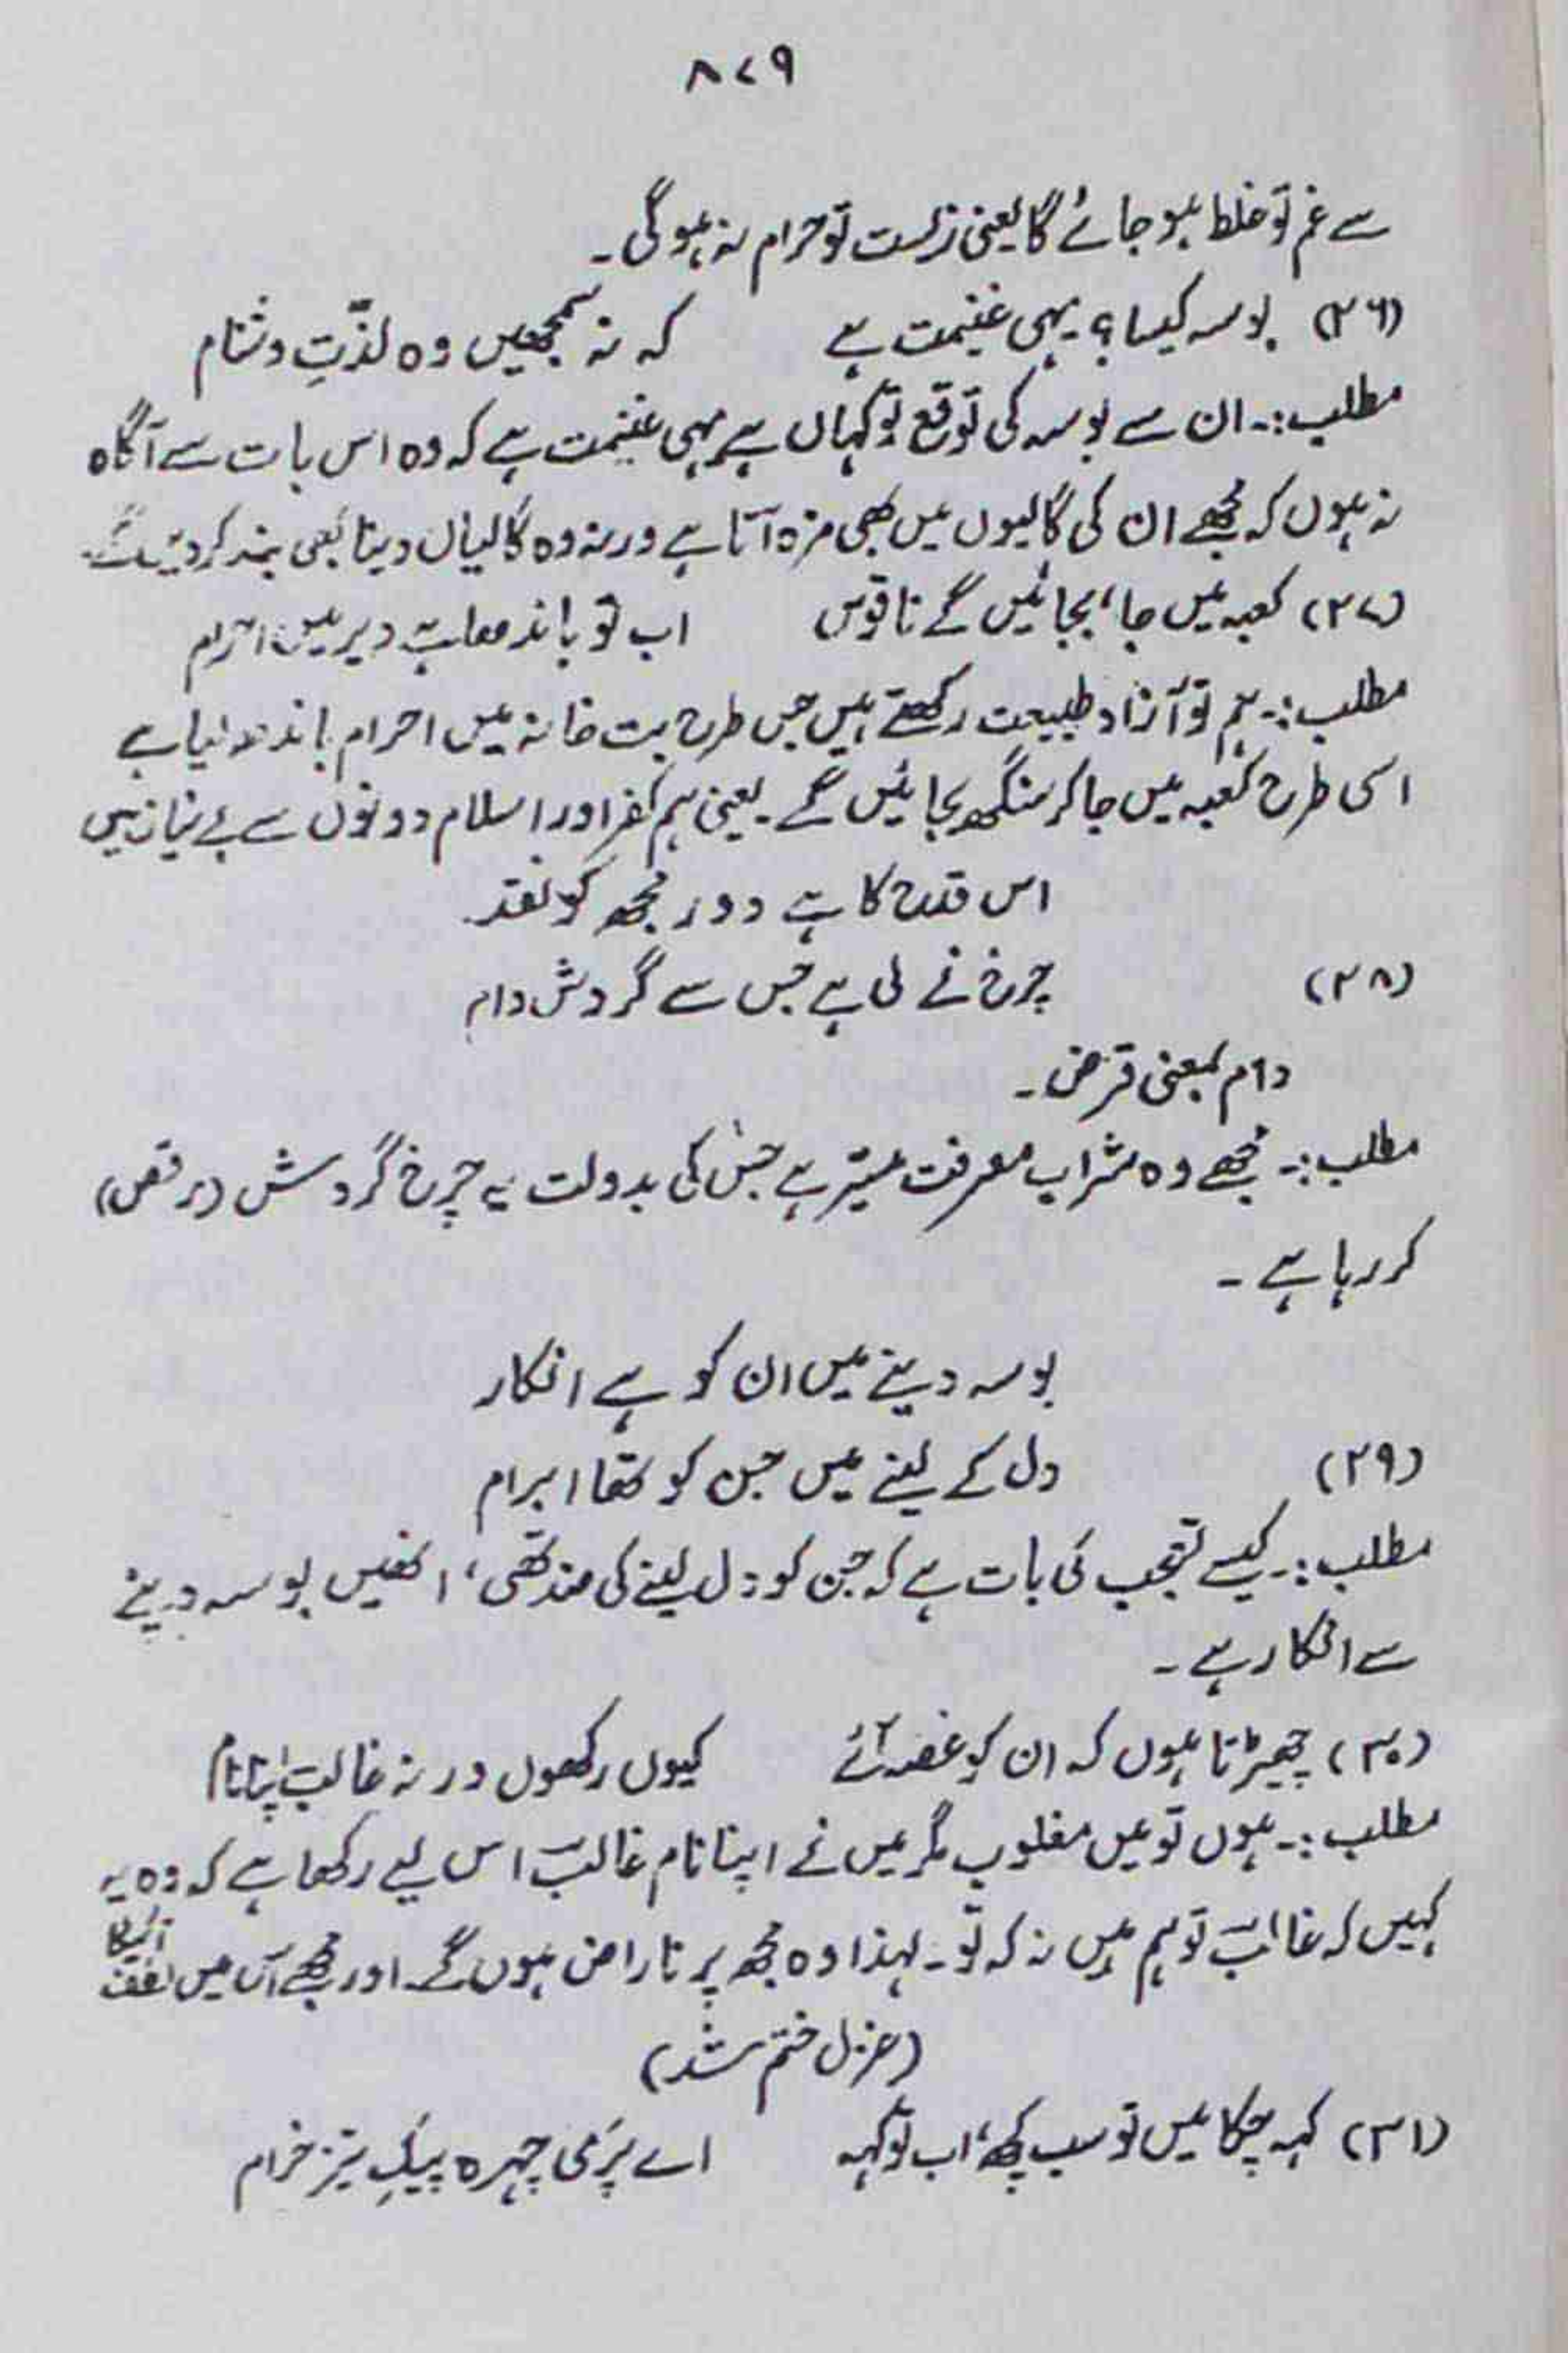 ۸۷۹
سے غم تو غلط ہو جائے گا یعنی زیست تو حرام نہ ہوگی۔
(۲۶) بوسہ کیسا؟ یہی غنیمت ہے کہ نہ سمجھیں وہ لذّتِ دشنام
مطلب:۔ ان سے بوسہ کی توقع تو کہاں ہے یہی غنیمت ہے کہ وہ اس بات سے آگاہ
نہ ہوں کہ مجھے ان کی گالیوں میں بھی مزہ آتا ہے ورنہ وہ گالیاں دینا بھی بند کر دیں گے۔
(۲۷) کعبہ میں جا، بجائیں گے ناقوس اب تو باندھا ہے دیر میں احرام
مطلب:۔ ہم تو آزاد طبیعت رکھتے ہیں جس طرح بت خانہ میں احرام باندھ لیا ہے
اسی طرح کعبہ میں جا کر سنگھ بجائیں گے۔ یعنی ہم کفر اور اسلام دونوں سے بے نیاز ہیں
اس قدح کا ہے دور مجھ کو نقد
(۲۸) چرخ نے لی ہے جس سے گردش دام
دام بمعنی قرض۔
مطلب:۔ مجھے وہ شراب معرفت میسّر ہے جس کی بدولت یہ چرخ گردش (رقص)
کر رہا ہے۔
بوسہ دینے میں ان کو ہے انکار
(۲۹) دل کے لینے میں جن کو تھا ابرام
مطلب:۔ کیسے تعجب کی بات ہے کہ جن کو دل لینے کی ضد تھی، انھیں بوسہ دینے
سے انکار ہے۔
(۳۰) چھیڑتا ہوں کہ ان کو غصہ آئے کیوں رکھوں ورنہ غالبؔ اپنا نام
مطلب:۔ ہوں تو میں مغلوب مگر میں نے اپنا نام غالبؔ اس لیے رکھا ہے کہ وہ یہ
کہیں کہ غالبؔ تو ہم ہیں نہ کہ تو۔ لہذا وہ مجھ پر ناراض ہوں گے اور مجھے اس میں لطف آئیگا
(غزل ختم شد)
(۳۱) کہہ چکا میں تو سب کچھ، اب تو کہہ اے پَری چہرہ پیکِ تیز خرام